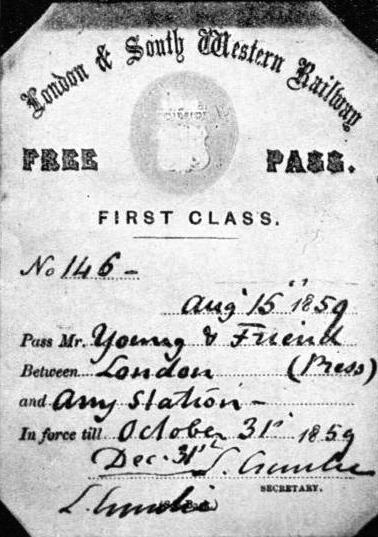 London & South Western Railway
FREE PASS.
FIRST CLASS.
No 146 -
Aug 15 1859
Pass Mr. Young & Friend
Between London (Press)
and Any Station -
In force till October 31st 1859
Dec. 31st
SECRETARY.